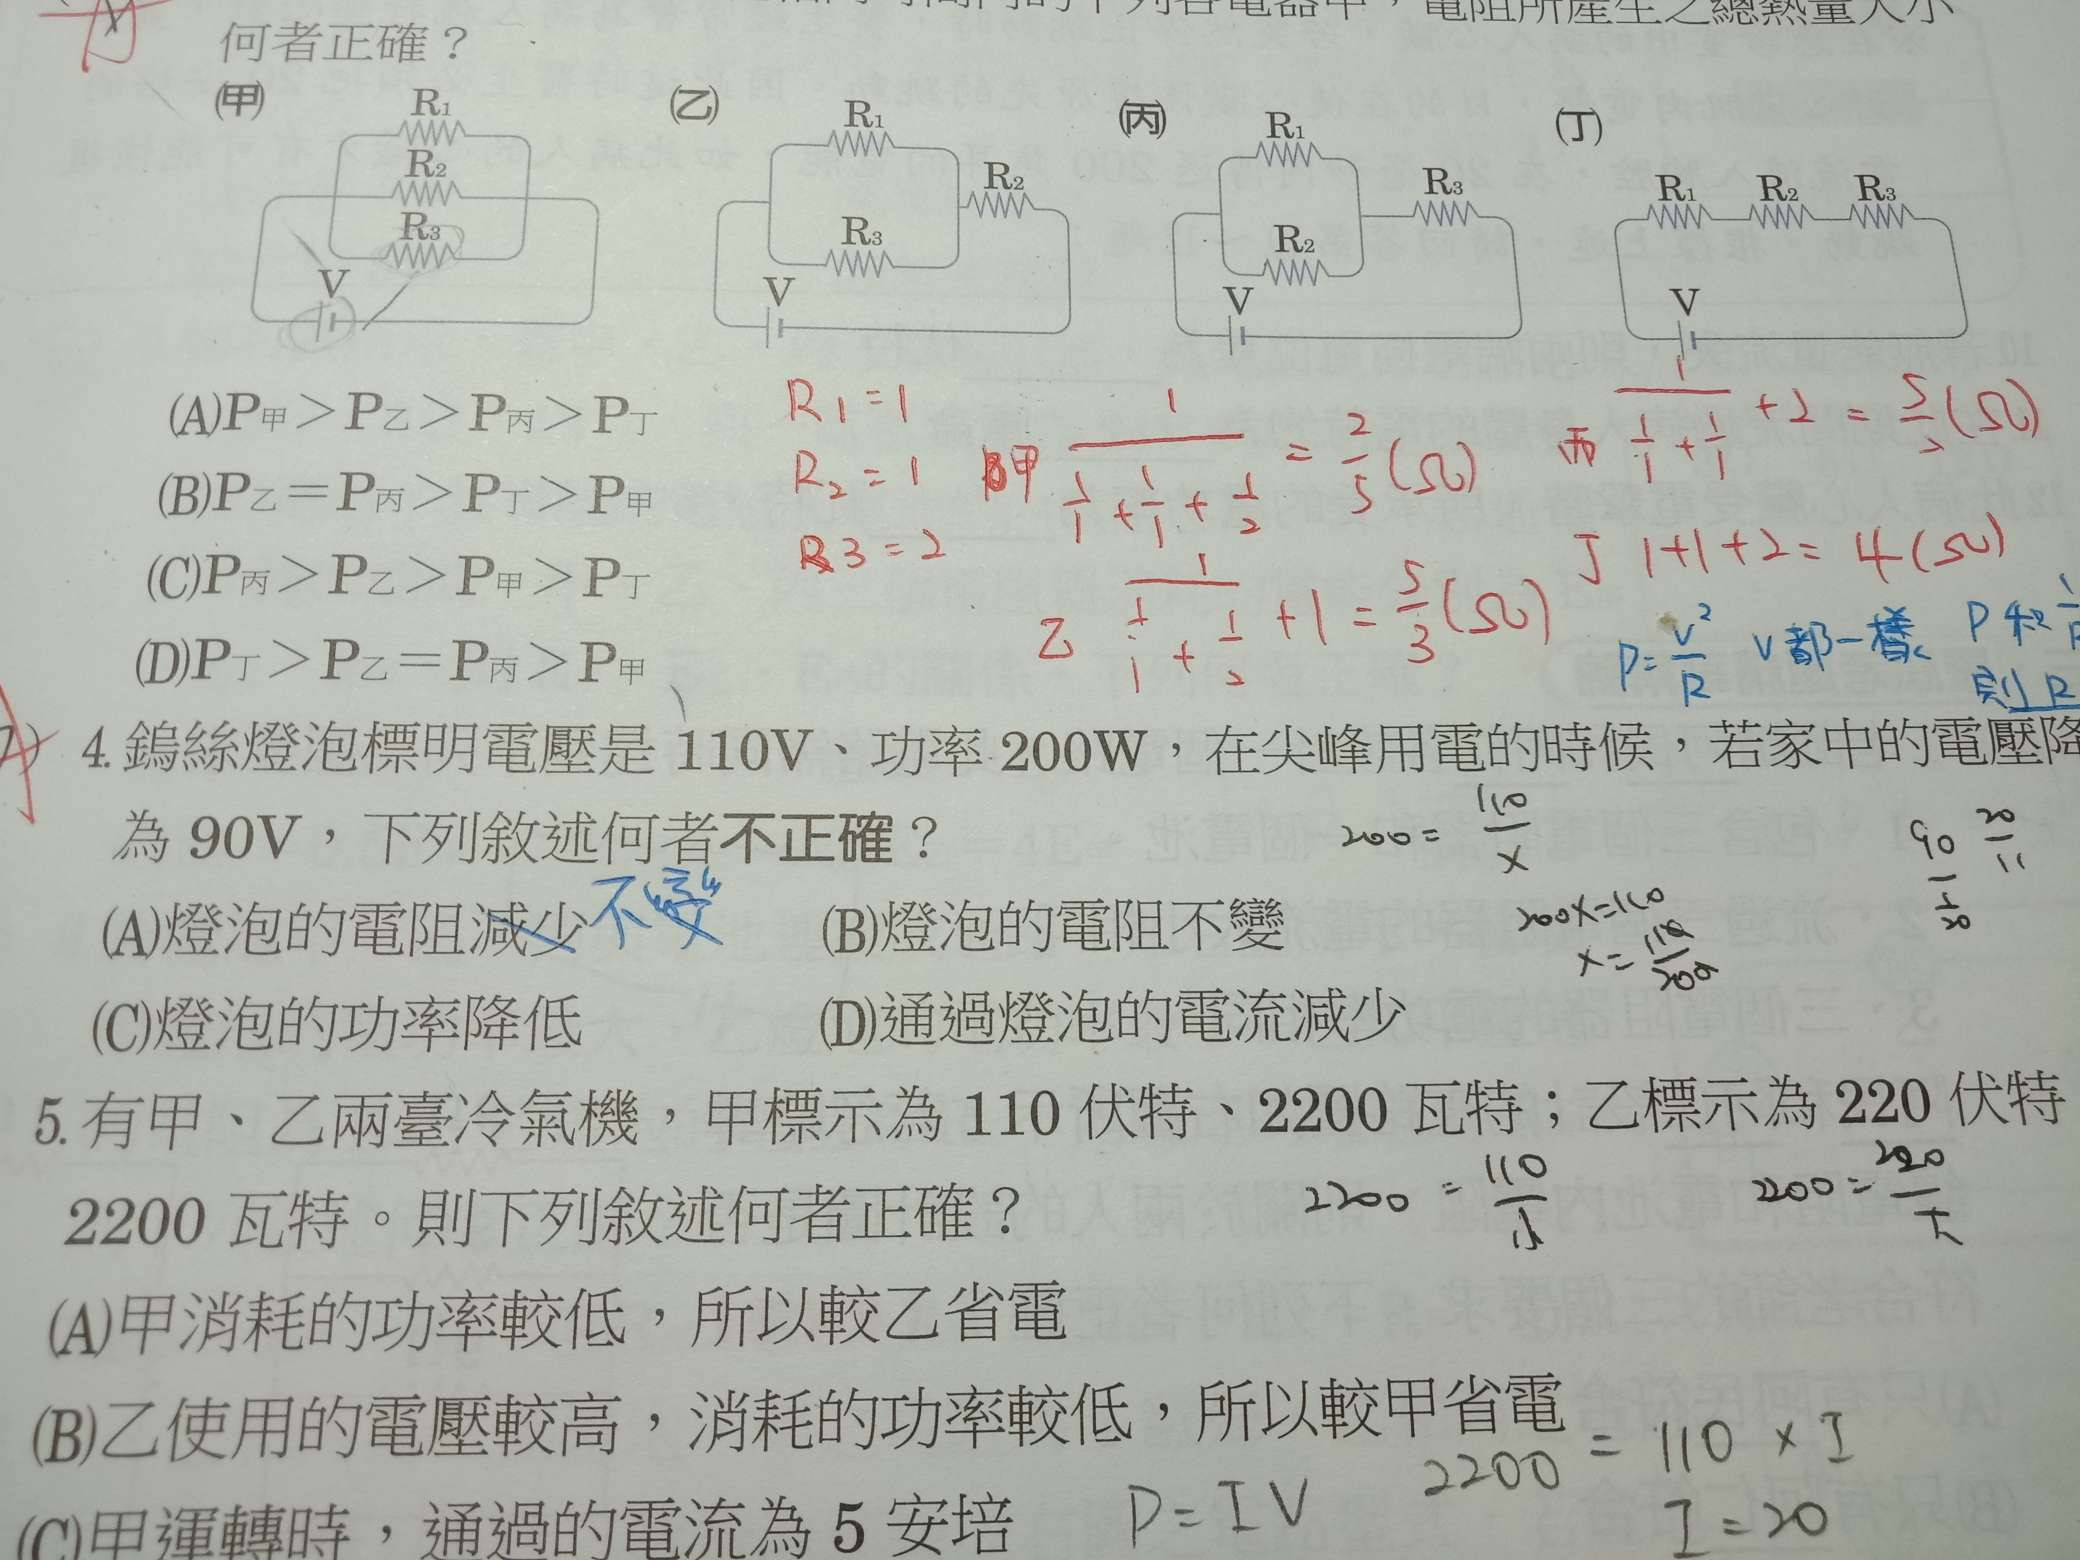 電阻所產生之總熱量大小
何者正確？
(甲) (乙) (丙) (丁)
R1 R1 R1
R2 R2 R3 R1 R2 R3
R3 R3 R2
V V V V
(A)P甲＞P乙＞P丙＞P丁
(B)P乙＝P丙＞P丁＞P甲
(C)P丙＞P乙＞P甲＞P丁
(D)P丁＞P乙＝P丙＞P甲
R1=1
R2=1
R3=2
甲 1/(1/1+1/1+1/2) = 2/5(Ω)
乙 1/(1/1+1/2) +1 = 5/3(Ω)
丙 1/(1/1+1/1) +2 = 5/2(Ω)
丁 1+1+2=4(Ω)
P=V²/R V都一樣 P和
則R
4.鎢絲燈泡標明電壓是 110V、功率 200W，在尖峰用電的時候，若家中的電壓降
為 90V，下列敘述何者不正確？
200=110/X
200X=110
X=110/200
20/11
(A)燈泡的電阻減少 不變 (B)燈泡的電阻不變
(C)燈泡的功率降低 (D)通過燈泡的電流減少
5.有甲、乙兩臺冷氣機，甲標示為 110 伏特、2200 瓦特；乙標示為 220 伏特
2200 瓦特。則下列敘述何者正確？
(A)甲消耗的功率較低，所以較乙省電
(B)乙使用的電壓較高，消耗的功率較低，所以較甲省電
(C)甲運轉時，通過的電流為 5 安培
P=IV
2200=110×I
I=20